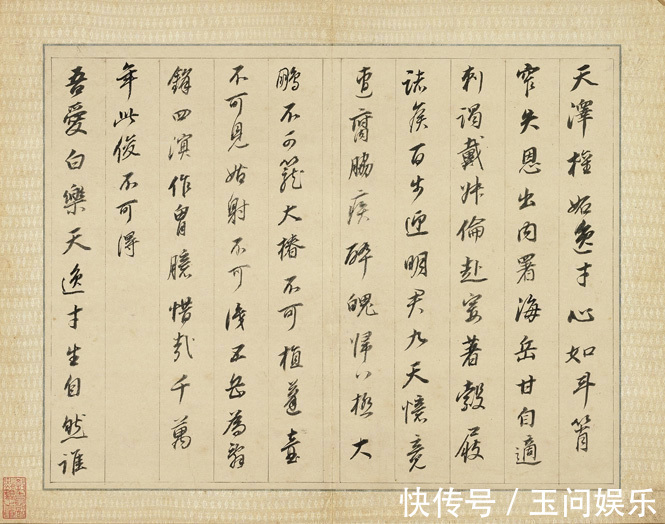 天澤權妬逸才心如斗筲
窄失恩出內署海岳甘自適
刺謁戴叔倫赴宴著縠屐
諸侯百步迎明君九天憶竟
遭腐脇疾醉魄歸八極大
鵬不可籠大椿不可植蓬壺
不可見姑射不可識五岳為辭
鋒四溟作胷臆惜哉千萬
年此俊不可得
吾愛白樂天逸才生自然誰
快传号 / 玉问娱乐